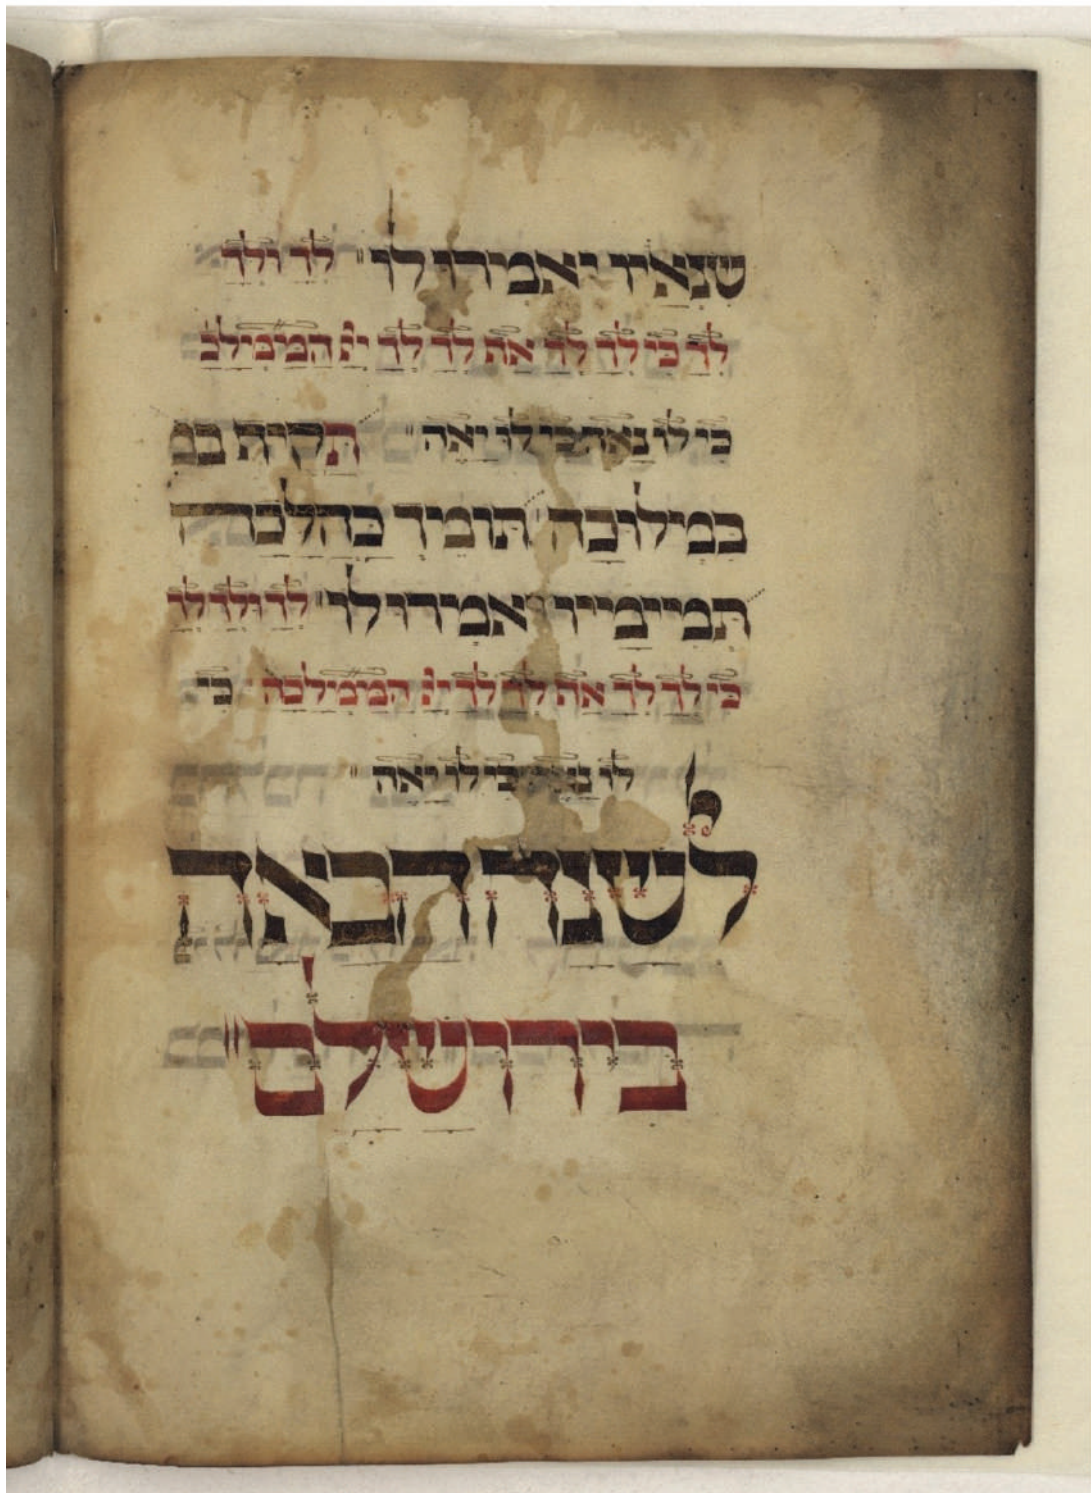 שנאיו יאמירו לו" לך ולך
לך כי לך לך אף לך לך יי המימילכ
כי לו נאה כי לו יאה" תקיף במ
במילוכה תומך כהלכה
תמימיו יאמרו לו" לך ולך לך
כי לך לך אף לך לך יי המימילכה כי
לו נאה כי לו יאה"
לשנה הבאה
בירושלם"